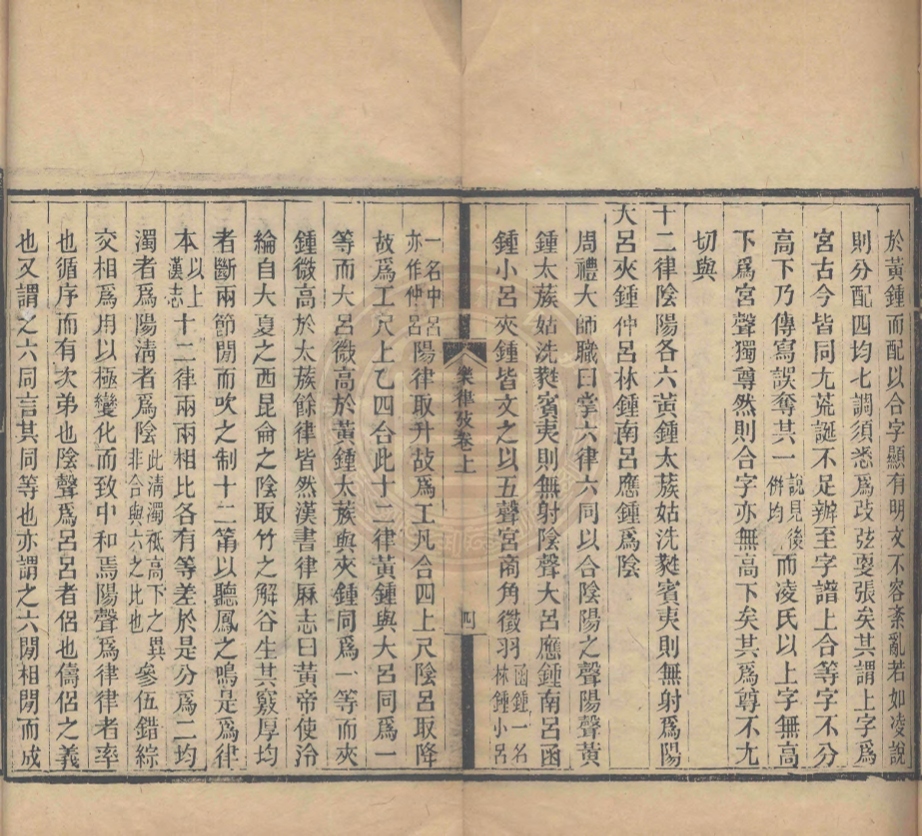 於黃鍾而配以合字顯有明文不容紊亂若如凌說
則分配四均七調須悉爲改弦更張矣其謂上字爲
宮古今皆同尢荒誕不足辦至字譜上合等字不分
高下乃傳寫誤奪其一說見後倂均而凌氏以上字無高
下爲宮聲獨尊然則合字亦無高下矣其爲尊不尢
切與
十二律陰陽各六黃鍾太蔟姑洗蕤賓夷則無射爲陽
大呂夾鍾仲呂林鍾南呂應鍾爲陰
周禮大師職曰掌六律六同以合陰陽之聲陽聲黃
鍾太蔟姑洗蕤賓夷則無射陰聲大呂應鍾南呂函
鍾小呂夾鍾皆文之以五聲宮商角徵羽函鍾一名林鍾小呂
樂律攷卷上
四
一名中呂亦作仲呂陽律取升故爲工凡合四上尺陰呂取降
故爲工尺上乙四合此十二律黃鍾與大呂同爲一
等而大呂微高於黃鍾太蔟與夾鍾同爲一等而夾
鍾微高於太蔟餘律皆然漢書律厤志曰黃帝使泠
綸自大夏之西昆侖之陰取竹之解谷生其竅厚均
者斷兩節閒而吹之制十二筩以聽鳳之鳴是爲律
本以上漢志十二律兩兩相比各有等差於是分爲二均
濁者爲陽淸者爲陰此淸濁祗高下之異非合與六之比也參伍錯綜
交相爲用以極變化而致中和焉陽聲爲律律者率
也循序而有次弟也陰聲爲呂呂者侶也儔侶之義
也又謂之六同言其同等也亦謂之六閒相閒而成